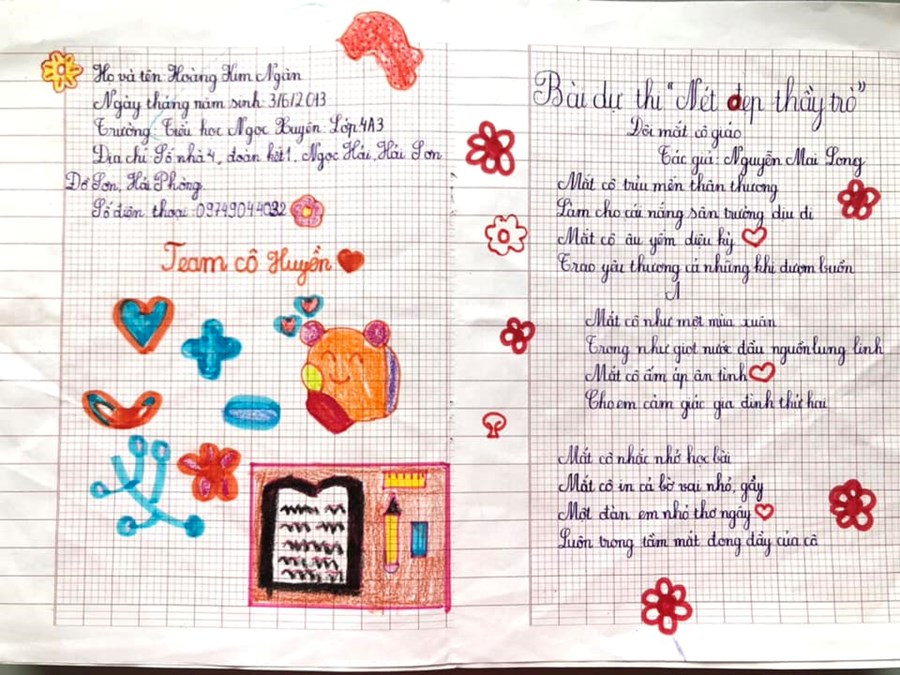 Họ và tên Hoàng Kim Ngân
Ngày tháng năm sinh: 3/6/2013
Trường Tiểu học Ngọc Xuyên Lớp:4A3
Địa chỉ Số nhà 4, đoàn kết 1, Ngọc Hải, Hải Sơn
Đồ Sơn, Hải Phòng
Số điện thoại: 09749044032
Team cô Huyền
Bài dự thi "Nét đẹp thầy trò"
Đôi mắt cô giáo
Tác giả: Nguyễn Mai Long
Mắt cô trìu mến thân thương
Làm cho cái nắng sân trường dịu đi
Mắt cô âu yếm diệu kỳ
Trao yêu thương cả những khi đượm buồn
Mắt cô như một mùa xuân
Trong như giọt nước đầu nguồn lung linh
Mắt cô ấm áp ân tình
Cho em cảm giác gia đình thứ hai
Mắt cô nhắc nhở học bài
Mắt cô in cả bờ vai nhỏ, gầy
Một đàn em nhỏ thơ ngây
Luôn trong tầm mắt đong đầy của cô